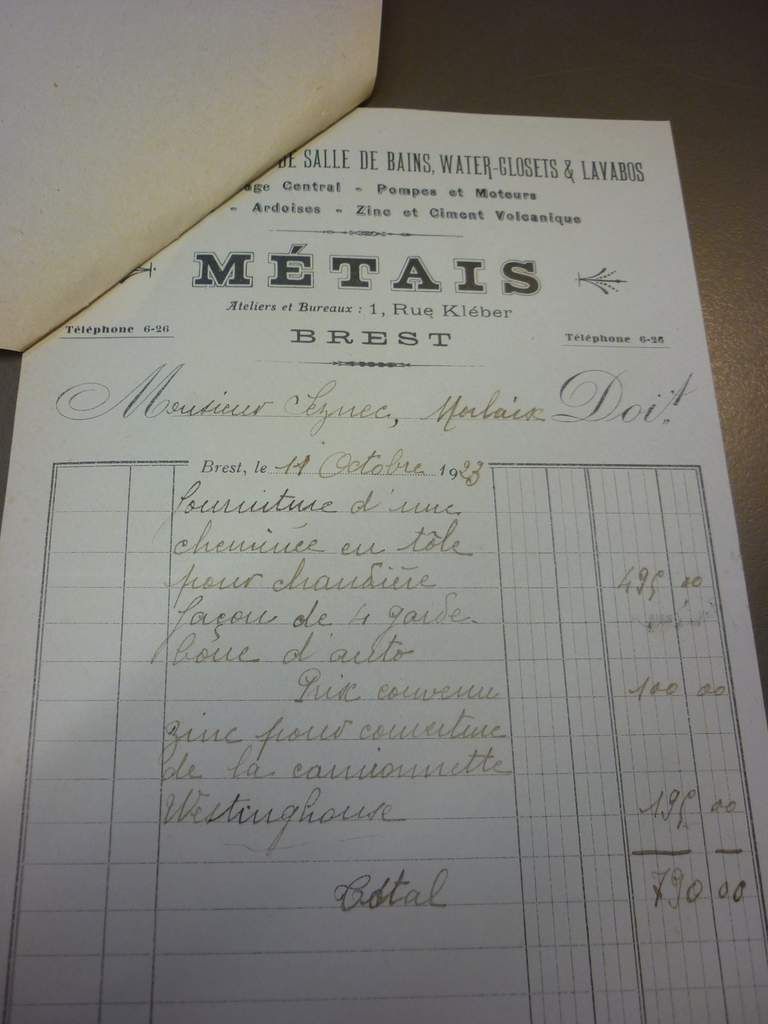 DE SALLE DE BAINS, WATER-CLOSETS & LAVABOS
age Central - Pompes et Moteurs
- Ardoises - Zinc et Ciment Volcanique
MÉTAIS
Ateliers et Bureaux : 1, Rue Kléber
Téléphone 6-26 BREST Téléphone 6-26
Monsieur Seznec, Morlaix Doit
Brest, le 11 Octobre 1923
fourniture d'une
cheminée en tôle
pour chaudière 495 00
façon de 4 garde-
boue d'auto
Prix convenu 100 00
Zinc pour couverture
de la camionnette
Westinghouse 195 00
Total 790 00